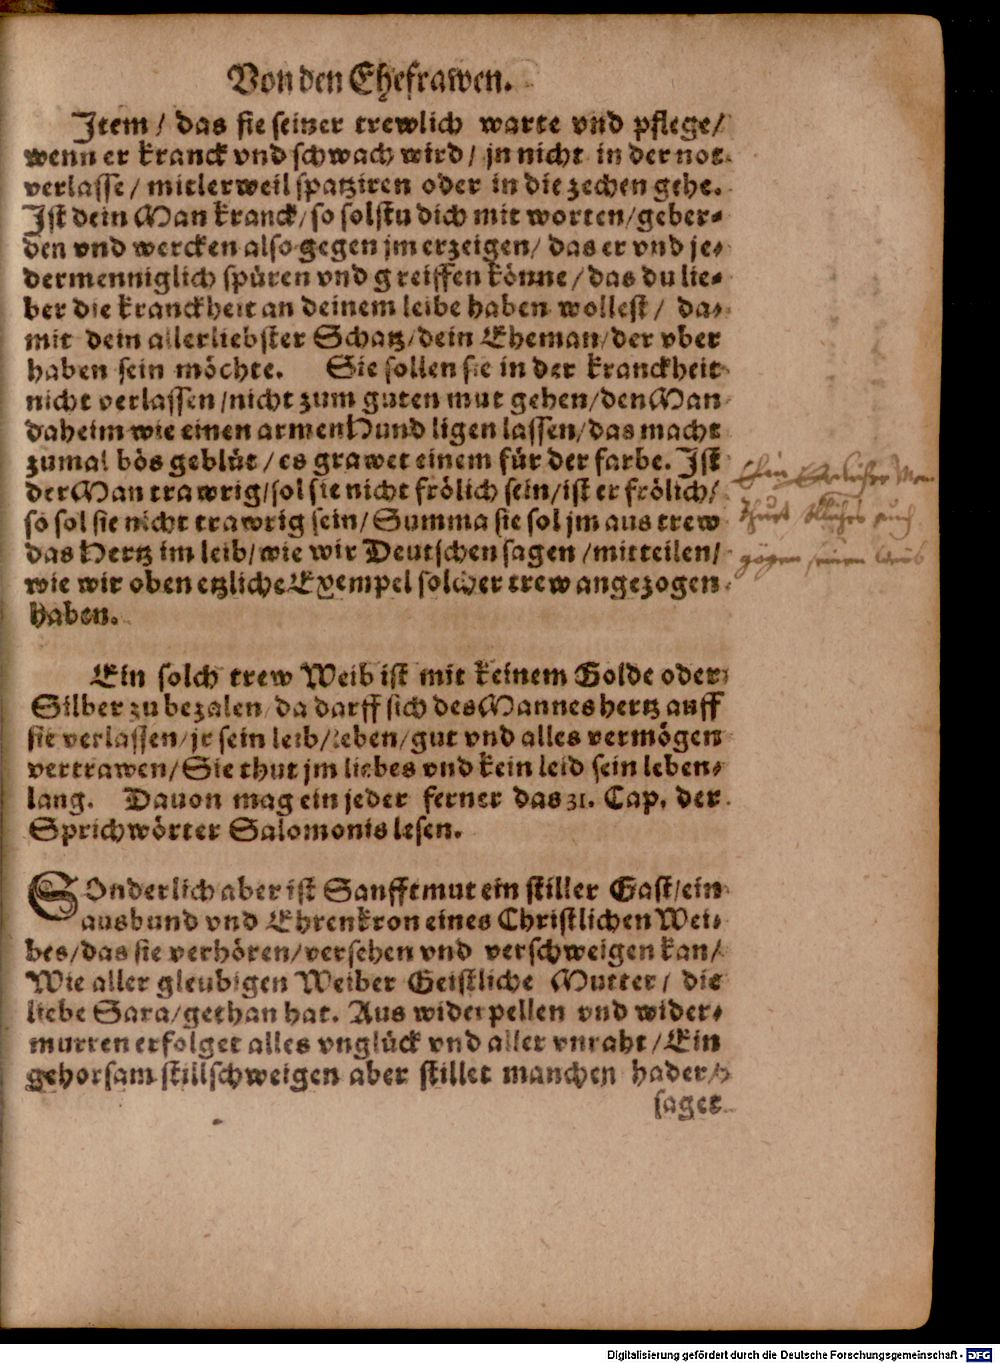 Von den Ehefrawen.
Item / das sie seiner trewlich warte vnd pflege/
wenn er kranck vnd schwach wird / jn nicht in der not
verlasse / mitlerweil spatziren oder in die zechen gehe.
Ist dein Man kranck/ so solstu dich mit worten/geber-
den vnd wercken also gegen jm erzeigen/ das er vnd je-
dermenniglich spüren vnd greiffen könne / das du lie-
ber die kranckheit an deinem leibe haben wollest / da-
mit dein allerliebster Schatz/dein Eheman/der vber
haben sein möchte. Sie sollen sie in der kranckheit
nicht verlassen /nicht zum guten mut gehen/den Man
daheim wie einen armen Hund ligen lassen/das macht
zumal bös geblüt / es grawet einem für der farbe. Ist
der Man trawrig/sol sie nicht frölich sein/ist er frölich/
so sol sie nicht trawrig sein/ Summa sie sol jm aus trew
das Hertz im leib/ wie wir Deutschen sagen /mitteilen/
wie wir oben etzliche Exempel solcher trew angezogen
haben.
Ein solch trew Weib ist mit keinem Golde oder
Silber zu bezalen/ da darff sich des Mannes hertz auff
sie verlassen/ jr sein leib/leben/gut vnd alles vermögen
vertrawen/ Sie thut jm liebes vnd kein leid sein leben-
lang. Dauon mag ein jeder ferner das 31. Cap. der
Sprichwörter Salomonis lesen.
SOnderlich aber ist Sanfftmut ein stiller Gast/ein
ausbund vnd Ehrenkron eines Christlichen Wei-
bes/das sie verhören/versehen vnd verschweigen kan/
Wie aller gleubigen Weiber Geistliche Mutter / die
liebe Sara/gethan hat. Aus widerpellen vnd wider-
murren erfolget alles vnglück vnd aller vnraht / Ein
gehorsam stillschweigen aber stillet manchen hader/
saget
Thut auch
gögen seinen Weib
Digitalisierung gefördert durch die Deutsche Forschungsgemeinschaft - DFG